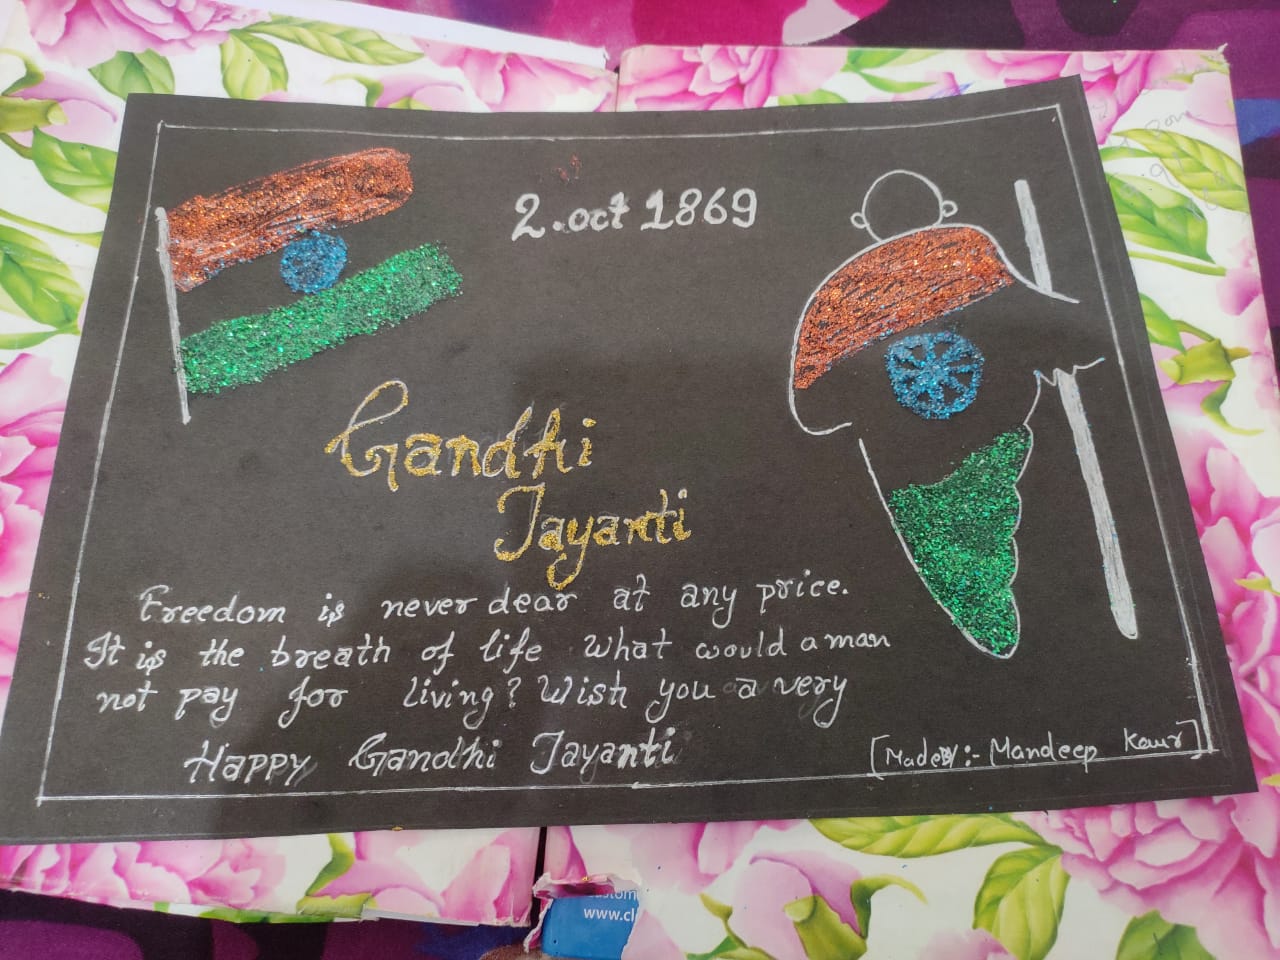 2.oct 1869
Gandhi
Jayanti
Freedom is never dear at any price.
It is the breath of life what would a man
not pay for living? Wish you a very
HAPPY Gandhi Jayanti
[Made By :- Mandeep Kaur]
custom
www.cl